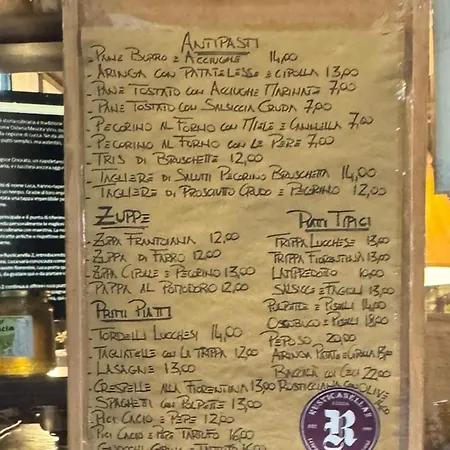 ANTIPASTI
PANE BURRO E ACCIUGHE 14,00
ARINGA CON PATATE LESSE E CIPOLLA 13,00
PANE TOSTATO CON ACCIUGHE MARINATE 7,00
PANE TOSTATO CON SALSICCIA CRUDA 7,00
PECORINO AL FORNO CON MIELE E CANNELLA 7,00
PECORINO AL FORNO CON LE PERE 7,00
TRIS DI BRUSCHETTE 12,00
TAGLIERE DI SALUTI PECORINO BRUSCHETTA 14,00
TAGLIERE DI PROSCIUTTO CRUDO E PECORINO 12,00
ZUPPE
ZUPPA FRANTOIANA 12,00
ZUPPA DI FARRO 12,00
ZUPPA CIPOLLE E PECORINO 13,00
PAPPA AL POMODORO 12,00
PRIMI PIATTI
TORDELLI LUCCHESI 14,00
TAGLIATELLE CON LA TRIPPA 12,00
LASAGNE 13,00
CRESPELLE ALLA FIORENTINA 13,00
SPAGHETTI CON POLPETTE 13,00
PICI CACIO E PEPE 12,00
PICI CACIO E PEPE TARTUFO 16,00
PIATTI TIPICI
TRIPPA LUCCHESE 13,00
TRIPPA FIORENTINA 13,00
LAMPREDOTTO 10,00
SALSICCE E FAGIOLI 13,00
POLPETTE E PISELLI 14,00
OSSOBUCO E PISELLI 18,00
PEPOSO 20,00
ARINGA PATATE E CIPOLLA
BACCALÀ CON CECI 22,00
RUSTICCIANA CON OLIVE
RUSTICANELLA 2
R